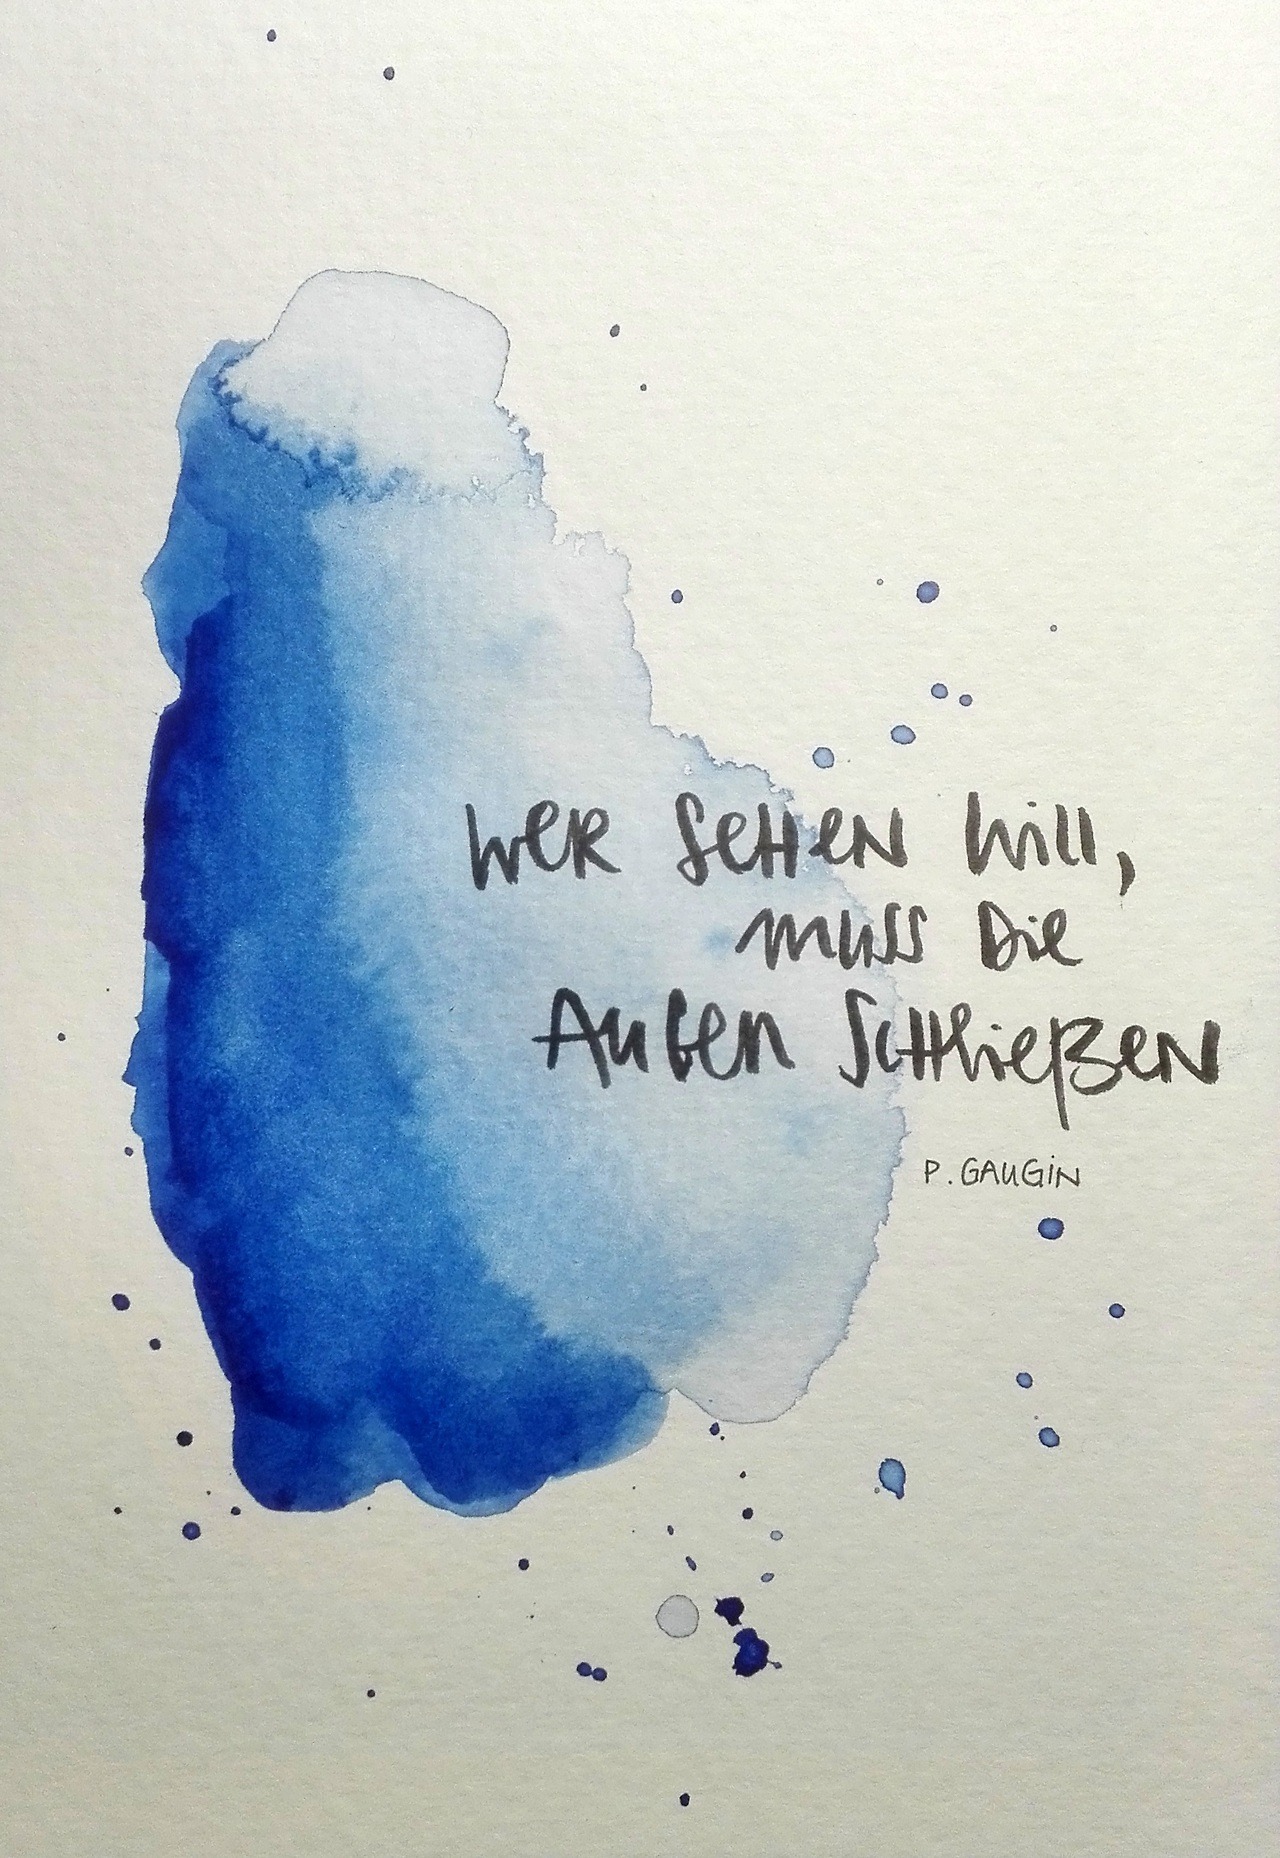 Wer sehen will,
muss die
Augen schließen
P. GAUGIN